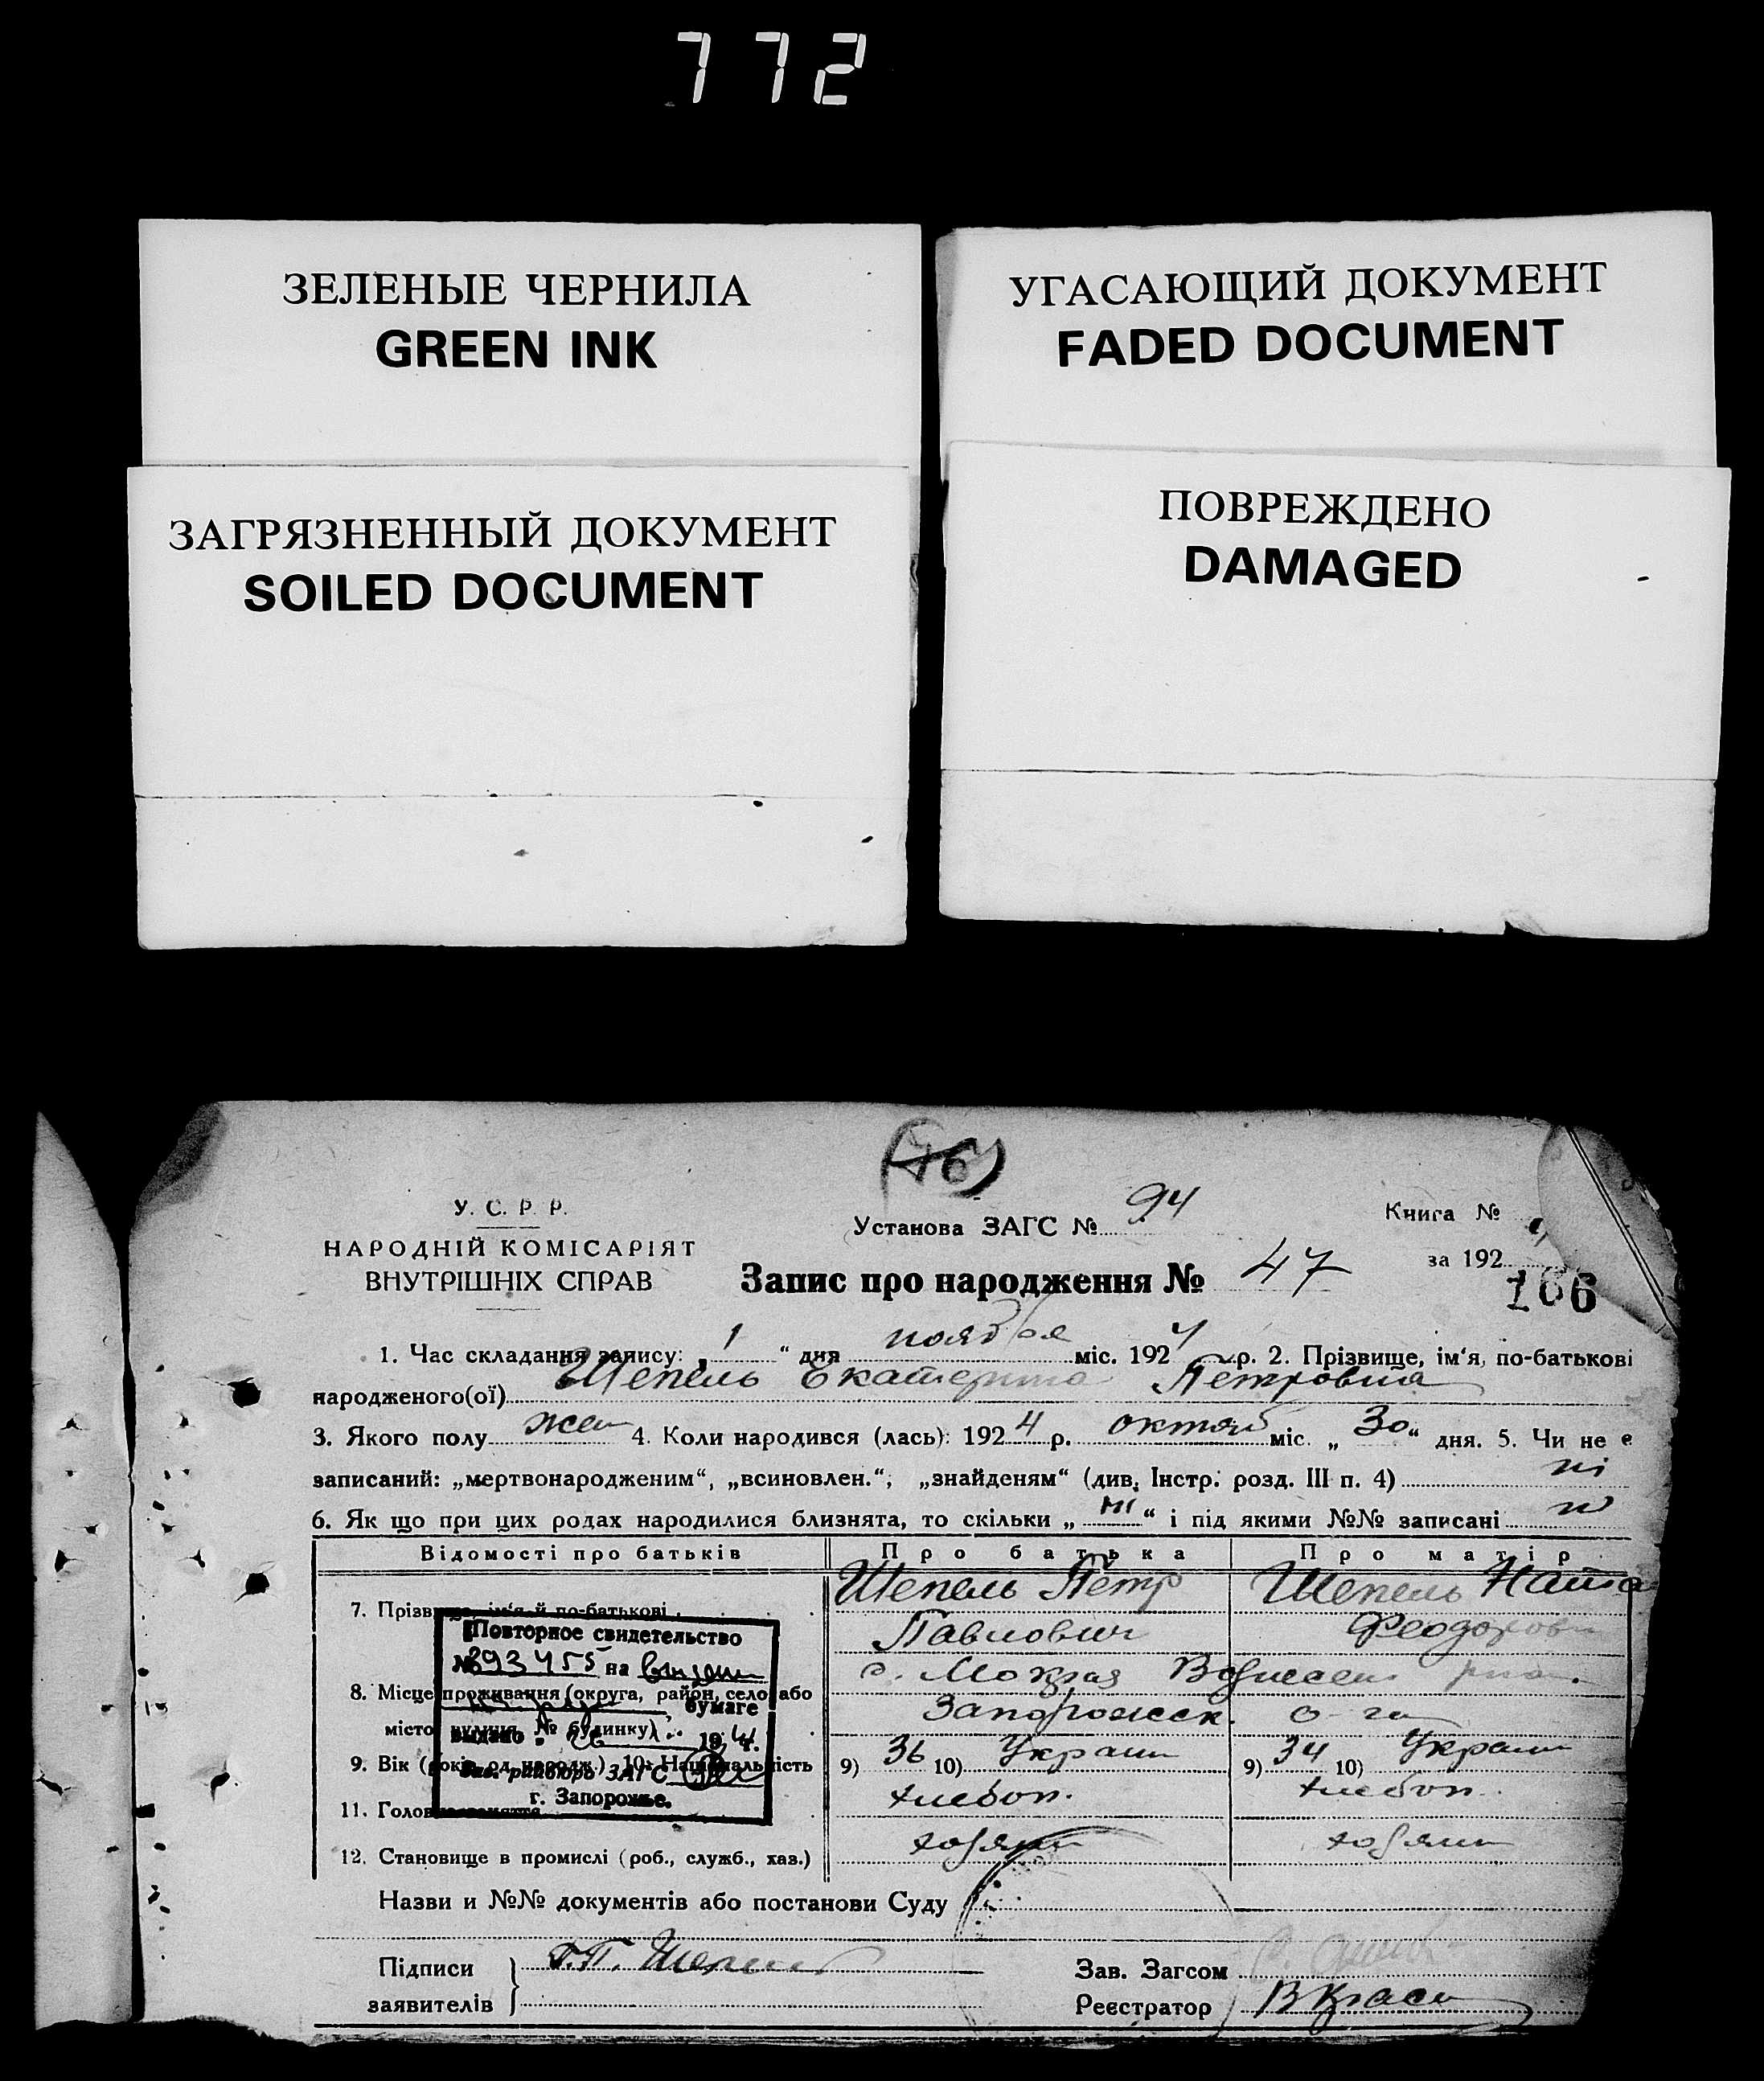 772
ЗЕЛЕНЫЕ ЧЕРНИЛА
GREEN INK
УГАСАЮЩИЙ ДОКУМЕНТ
FADED DOCUMENT
ЗАГРЯЗНЕННЫЙ ДОКУМЕНТ
SOILED DOCUMENT
ПОВРЕЖДЕНО
DAMAGED
(46)
У. С. Р. Р.
НАРОДНІЙ КОМІСАРІЯТ
ВНУТРІШНІХ СПРАВ
Установа ЗАГС № 94
Книга №
за 192
166
Запис про народження № 47
1. Час складання запису: „ 1 “ дня ноября міс. 192 4 р. 2. Прізвище, ім‘я, по-батькові
народженого(ої) Шепель Екатерина Петровна
3. Якого полу жен 4. Коли народився (лась): 192 4 р. октяб міс. „ 30 “ дня. 5. Чи не є
записаний: „мертвонародженим“, „всиновлен.“, „знайденям“ (див. Інстр. розд. III п. 4) ні
6. Як що при цих родах народилися близнята, то скільки „ ні “ і під якими №№ записані
Відомості про батьків Про батька Про матір
7. Прізвище, ім‘я й по-батькові Шепель Пётр Шепель Ната
Павлович Феодоров
8. Місце проживання (округа, район, село або с. Мокрая
місто, вулиця, № будинку) Запорожск. о-га
9. Вік (років од народж.) 10. Національність 9) 36 10) Украин 9) 34 10) Украин
11. Головне заняття хлебоп. хлебоп.
12. Становище в промислі (роб., служб., хаз.) хозяин хозяин
Повторное свидетельство
№ 893455 на
бумаге
выдано 26
Зав. райбюро ЗАГС
г. Запорожье.
Назви и №№ документів або постанови Суду
Підписи
заявителів
Зав. Загсом
Реєстратор